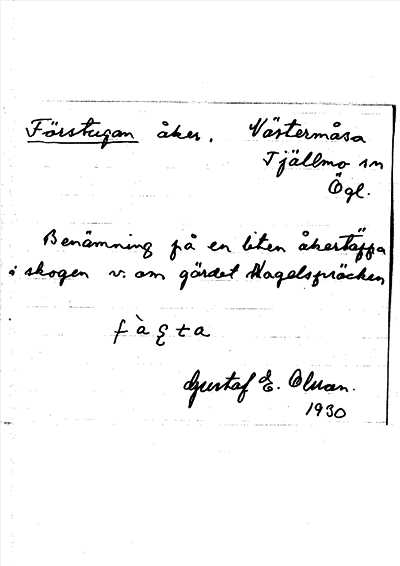 Förstugan åker. Västermåsa
Tjällmo sn
Ögl.
Benämning på en liten åkertäppa
i skogen v. om gärdet Hagelspräcken
Gustaf E. Olsson.
1930